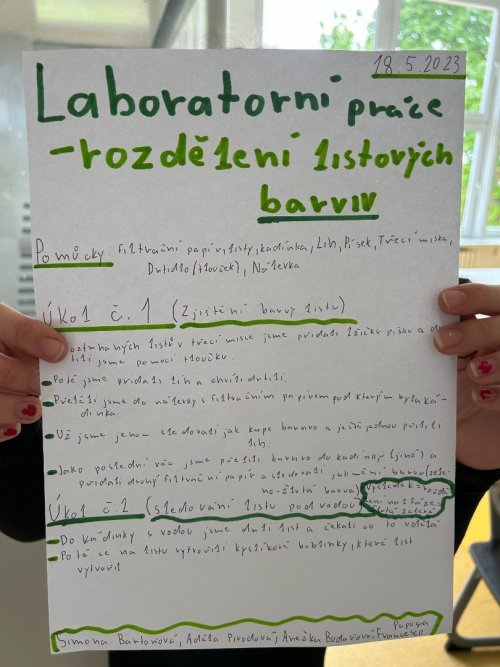 18.5.2023
Laboratorní práce
-rozdělení listových
barviv
Pomůcky: filtrační papír, listy, kádinka, Líh, Písek, Třecí miska,
Drtidlo (tlouček), Nálevka
Úkol č. 1 (Zjištění barvy listu)
roztrhaných listů v třecí misce jsme přidali lžičku písku a
jsme pomocí tloučku.
Poté jsme přidali líh a chvíli drtili.
Přelili jsme do nálevky s filtračním papírem pod kterým byla ká-
dinka.
Už jsme jenom sledovali jak kape barvivo a ještě jednou přilili
líh.
Jako poslední věc jsme přelili barvivo do kádinky (jiné) a
přidali druhý filtrační papír a sledovali jak mění barvu (zele-
no-žlutá barva)
výsledek = rozdě-
lení na 2 fáze =
žlutá zelená
Úkol č. 2 (sledování listu pod vodou)
Do kádinky s vodou jsme dali list a čekali co to udělá
Poté se na listu vytvořili kyslíkové bublinky, které list
vytvořil
Papusa
Simona Bantoniová, Adéla Pivodová, Anežka Budariová, Francesco